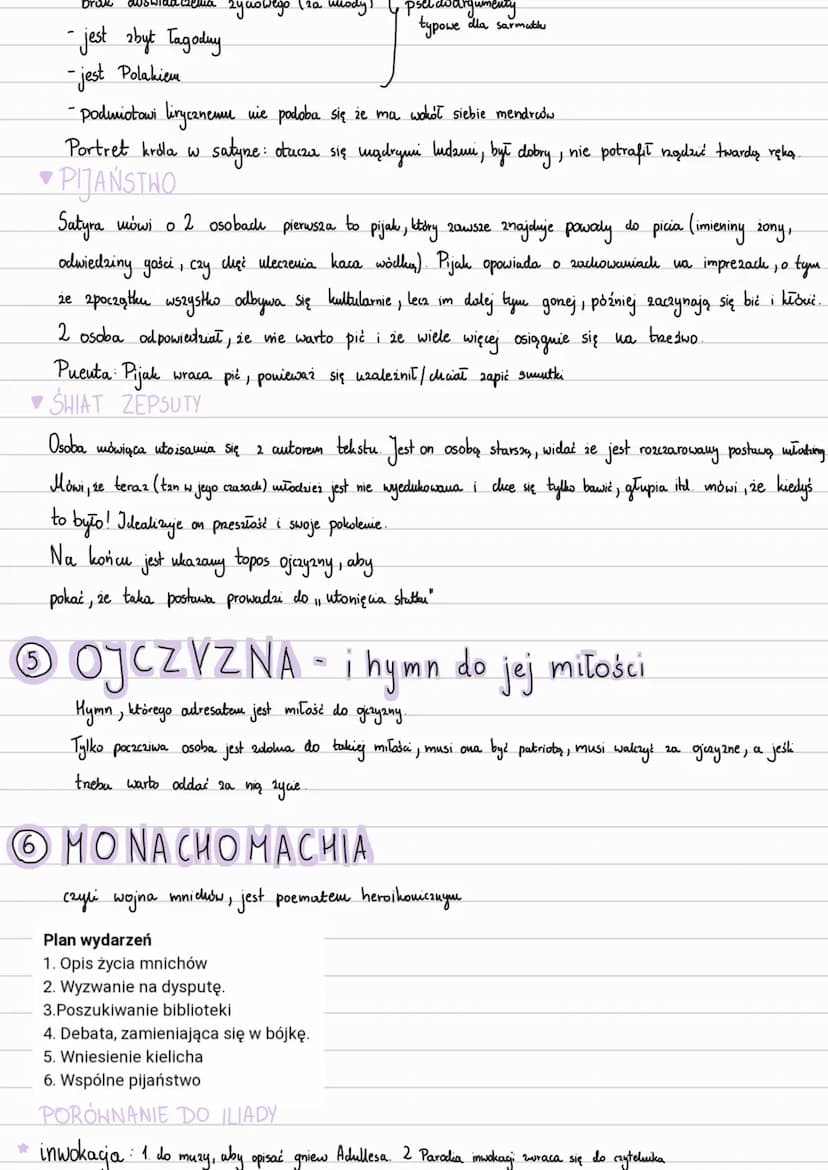 brak doświadczenia życiowego (za młody) pseudoargumenty
typowe dla sarmatów
- jest zbyt łagodny
- jest Polakiem
- podmiotowi lirycznemu nie podoba się że ma wokół siebie mendrców
Portret króla w satyrze: otacza się mądrymi ludźmi, był dobry, nie potrafił rządzić twardą ręką.
♥ PIJAŃSTWO
Satyra mówi o 2 osobach pierwsza to pijak, który zawsze znajduje powody do picia (imieniny żony,
odwiedziny gości, czy chęć uleczenia kaca wódką). Pijak opowiada o zachowaniach na imprezach, o tym
że zpoczątku wszystko odbywa się kulturalnie, lecz im dalej tym gorzej, później zaczynają się bić i kłócić.
2 osoba odpowiedział, że nie warto pić i że wiele więcej osiągnie się na trzeźwo.
Puenta: Pijak wraca pić, ponieważ się uzależnił/chciał zapić smutki
♥ ŚWIAT ZEPSUTY
Osoba mówiąca utożsamia się z autorem tekstu. Jest on osobą starszą, widać że jest rozczarowany postawą młodzieży
Mówi, że teraz (tzn w jego czasach) młodzież jest nie wyedukowana i chce się tylko bawić, głupia itd. mówi, że kiedyś
to było! Idealizuje on przeszłość i swoje pokolenie.
Na końcu jest ukazany topos ojczyzny, aby
pokać, że taka postawa prowadzi do „utonięcia statku"
⑤ OJCZYZNA - i hymn do jej miłości
Hymn, którego adresatem jest miłość do ojczyzny.
Tylko poczciwa osoba jest zdolna do takiej miłości, musi ona być patriotą, musi walczyć za ojczyznę, a jeśli
trzeba warto oddać za nią życie.
⑥ MONACHOMACHIA
czyli wojna mnichów, jest poematem heroikomicznym
Plan wydarzeń
1. Opis życia mnichów
2. Wyzwanie na dysputę.
3.Poszukiwanie biblioteki
4. Debata, zamieniająca się w bójkę.
5. Wniesienie kielicha
6. Wspólne pijaństwo
PORÓWNANIE DO ILIADY
* inwokacja: 1. do muzy, aby opisać gniew Achillesa. 2 Parodia inwokacji zwraca się do czytelnika